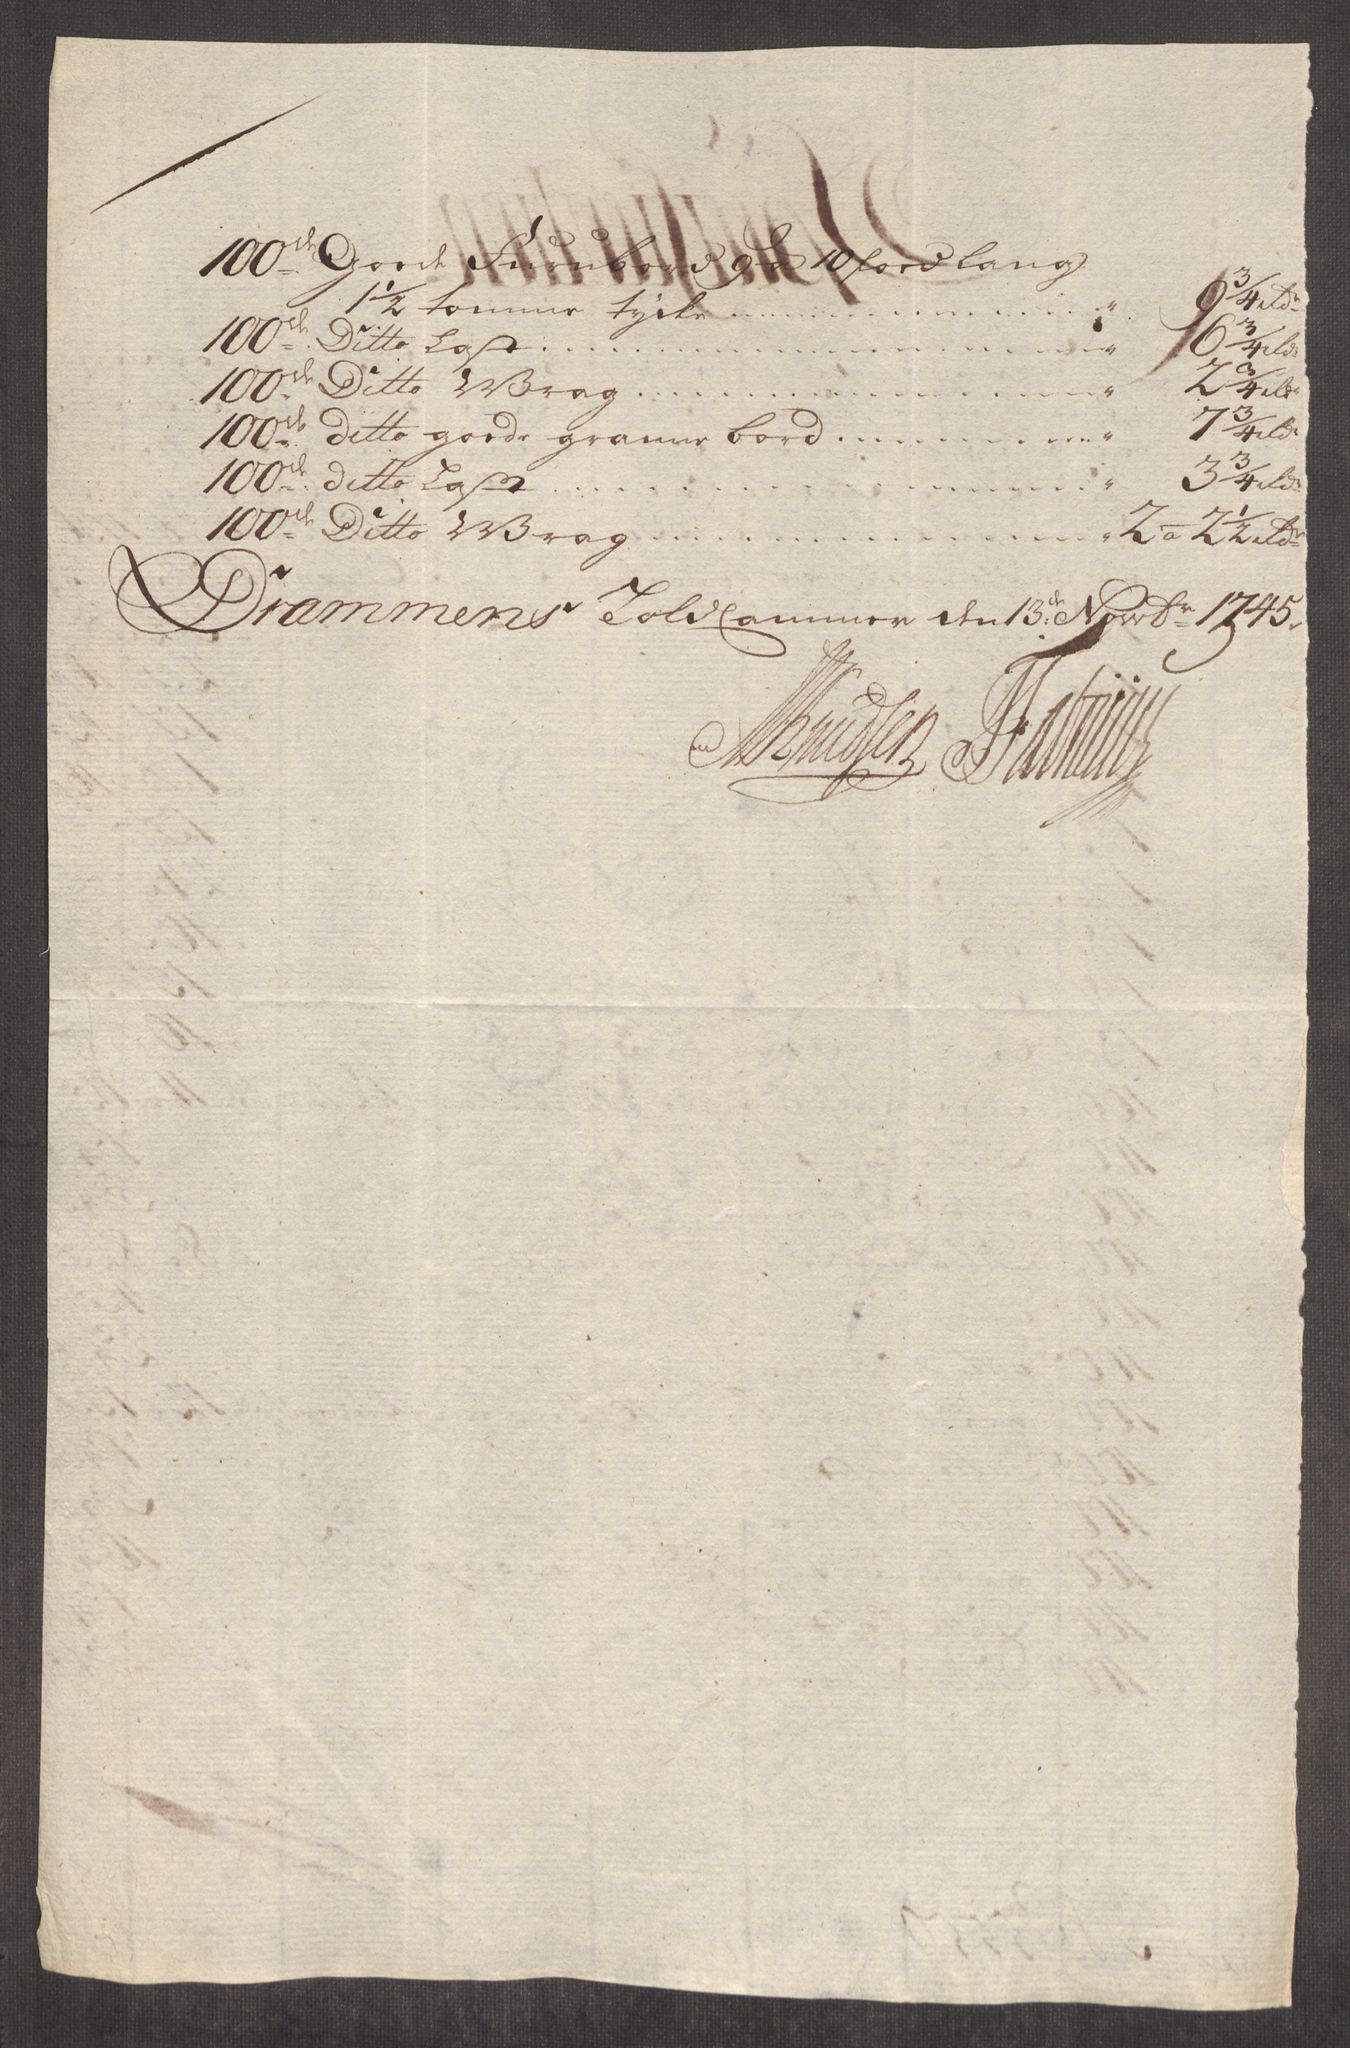 100de Goede Furubord 9 a 10 foed lang
1 1/2 tomme tycke ........ " 9 3/4 rdr
100de Ditto Last ........ " 6 3/4 rdr
100de Ditto Wrag ........ " 2 3/4 rdr
100de ditto goede granne bord ........ " 7 3/4 rdr
100de ditto Last ........ " 3 3/4 rdr
100de Ditto Wrag ........ " 2 a 2 1/2 rdr
Drammens Toldcammer den 13de Novbr 1745.
Knudsen